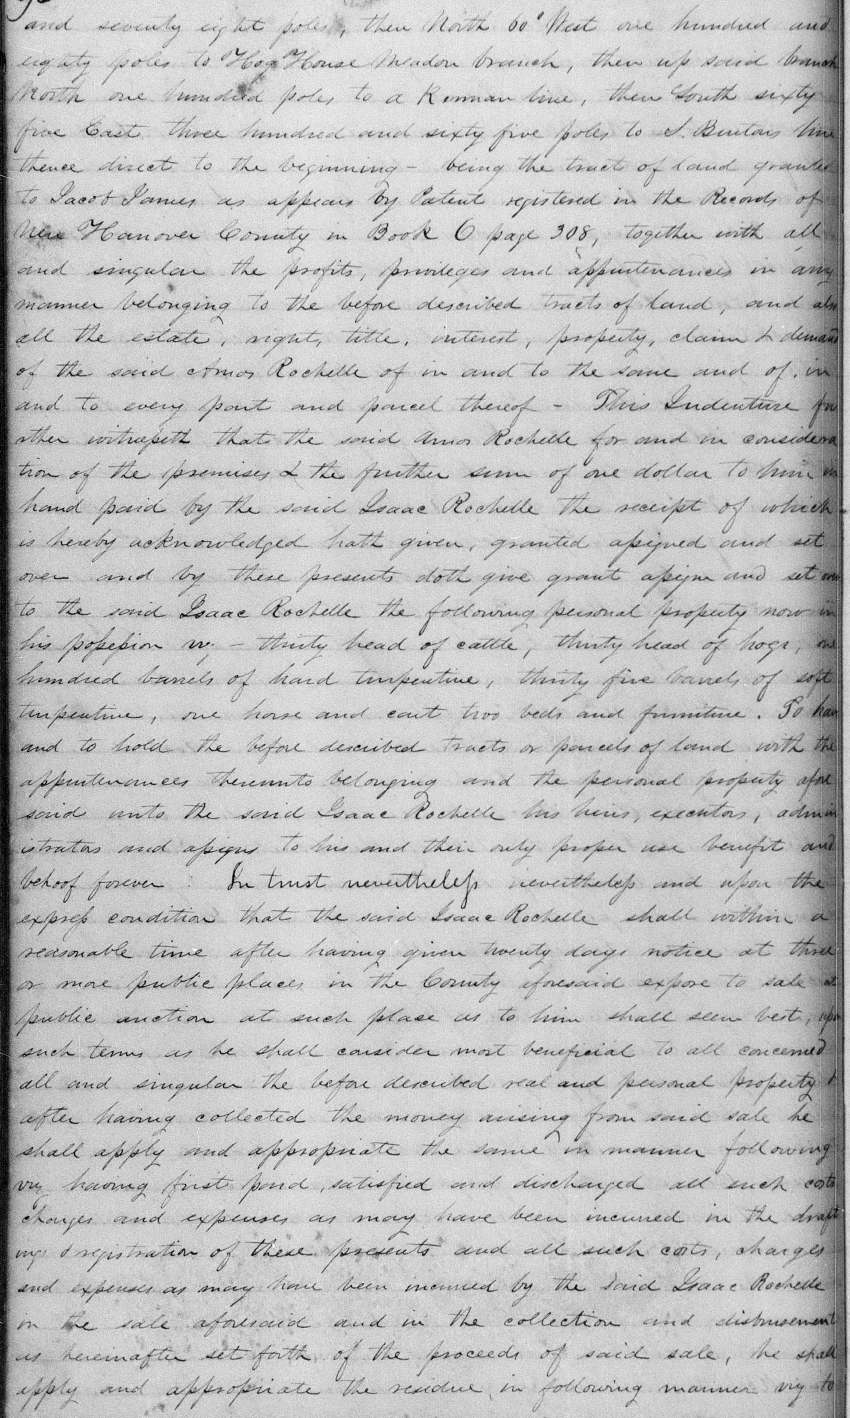 and seventy eight poles, then North 60° West one hundred and
eighty poles to Hog House Meadow branch, then up said branch
North one hundred poles to a line, then South sixty
five East three hundred and sixty five poles to line
thence direct to the beginning - being the tracts of land granted
to Jacob James as appears by Patent registered in the Records of
New Hanover County in Book 6 page 308, together with all
and singular the profits, privileges and appurtenances in any
manner belonging to the before described tracts of land, and also
all the estate, right, title, interest, property, claim & demand
of the said Amos Rochelle of in and to the same and of, in
and to every part and parcel thereof - This Indenture fur
ther witnesseth that the said Amos Rochelle for and in considera
tion of the premises & the further sum of one dollar to him in
hand paid by the said Isaac Rochelle the receipt of which
is hereby acknowledged hath given, granted assigned and set
over and by these presents doth give grant assign and set over
to the said Isaac Rochelle the following personal property now in
his possession viz - thirty head of cattle, thirty head of hogs, one
hundred barrels of hard turpentine, thirty five barrels of soft
turpentine, one horse and cart two beds and furniture. To have
and to hold the before described tracts or parcels of land with the
appurtenances thereunto belonging and the personal property afore
said unto the said Isaac Rochelle his heirs, executors, admin
istrators and assigns to his and their only proper use benefit and
behoof forever : In trust nevertheless nevertheless and upon the
express condition that the said Isaac Rochelle shall within a
reasonable time after having given twenty days notice at three
or more public places in the County aforesaid expose to sale at
public auction at such place as to him shall seem best, upon
such terms as he shall consider most beneficial to all concerned
all and singular the before described real and personal property &
after having collected the money arising from said sale he
shall apply and appropriate the same in manner following
viz having first paid, satisfied and discharged all such costs
charges and expenses as may have been incurred in the draft
ing & registration of these presents and all such costs, charges
and expenses as may have been incurred by the said Isaac Rochelle
in the sale aforesaid and in the collection and disbursement
as hereinafter set forth of the proceeds of said sale, he shall
apply and appropriate the residue in following manner viz to